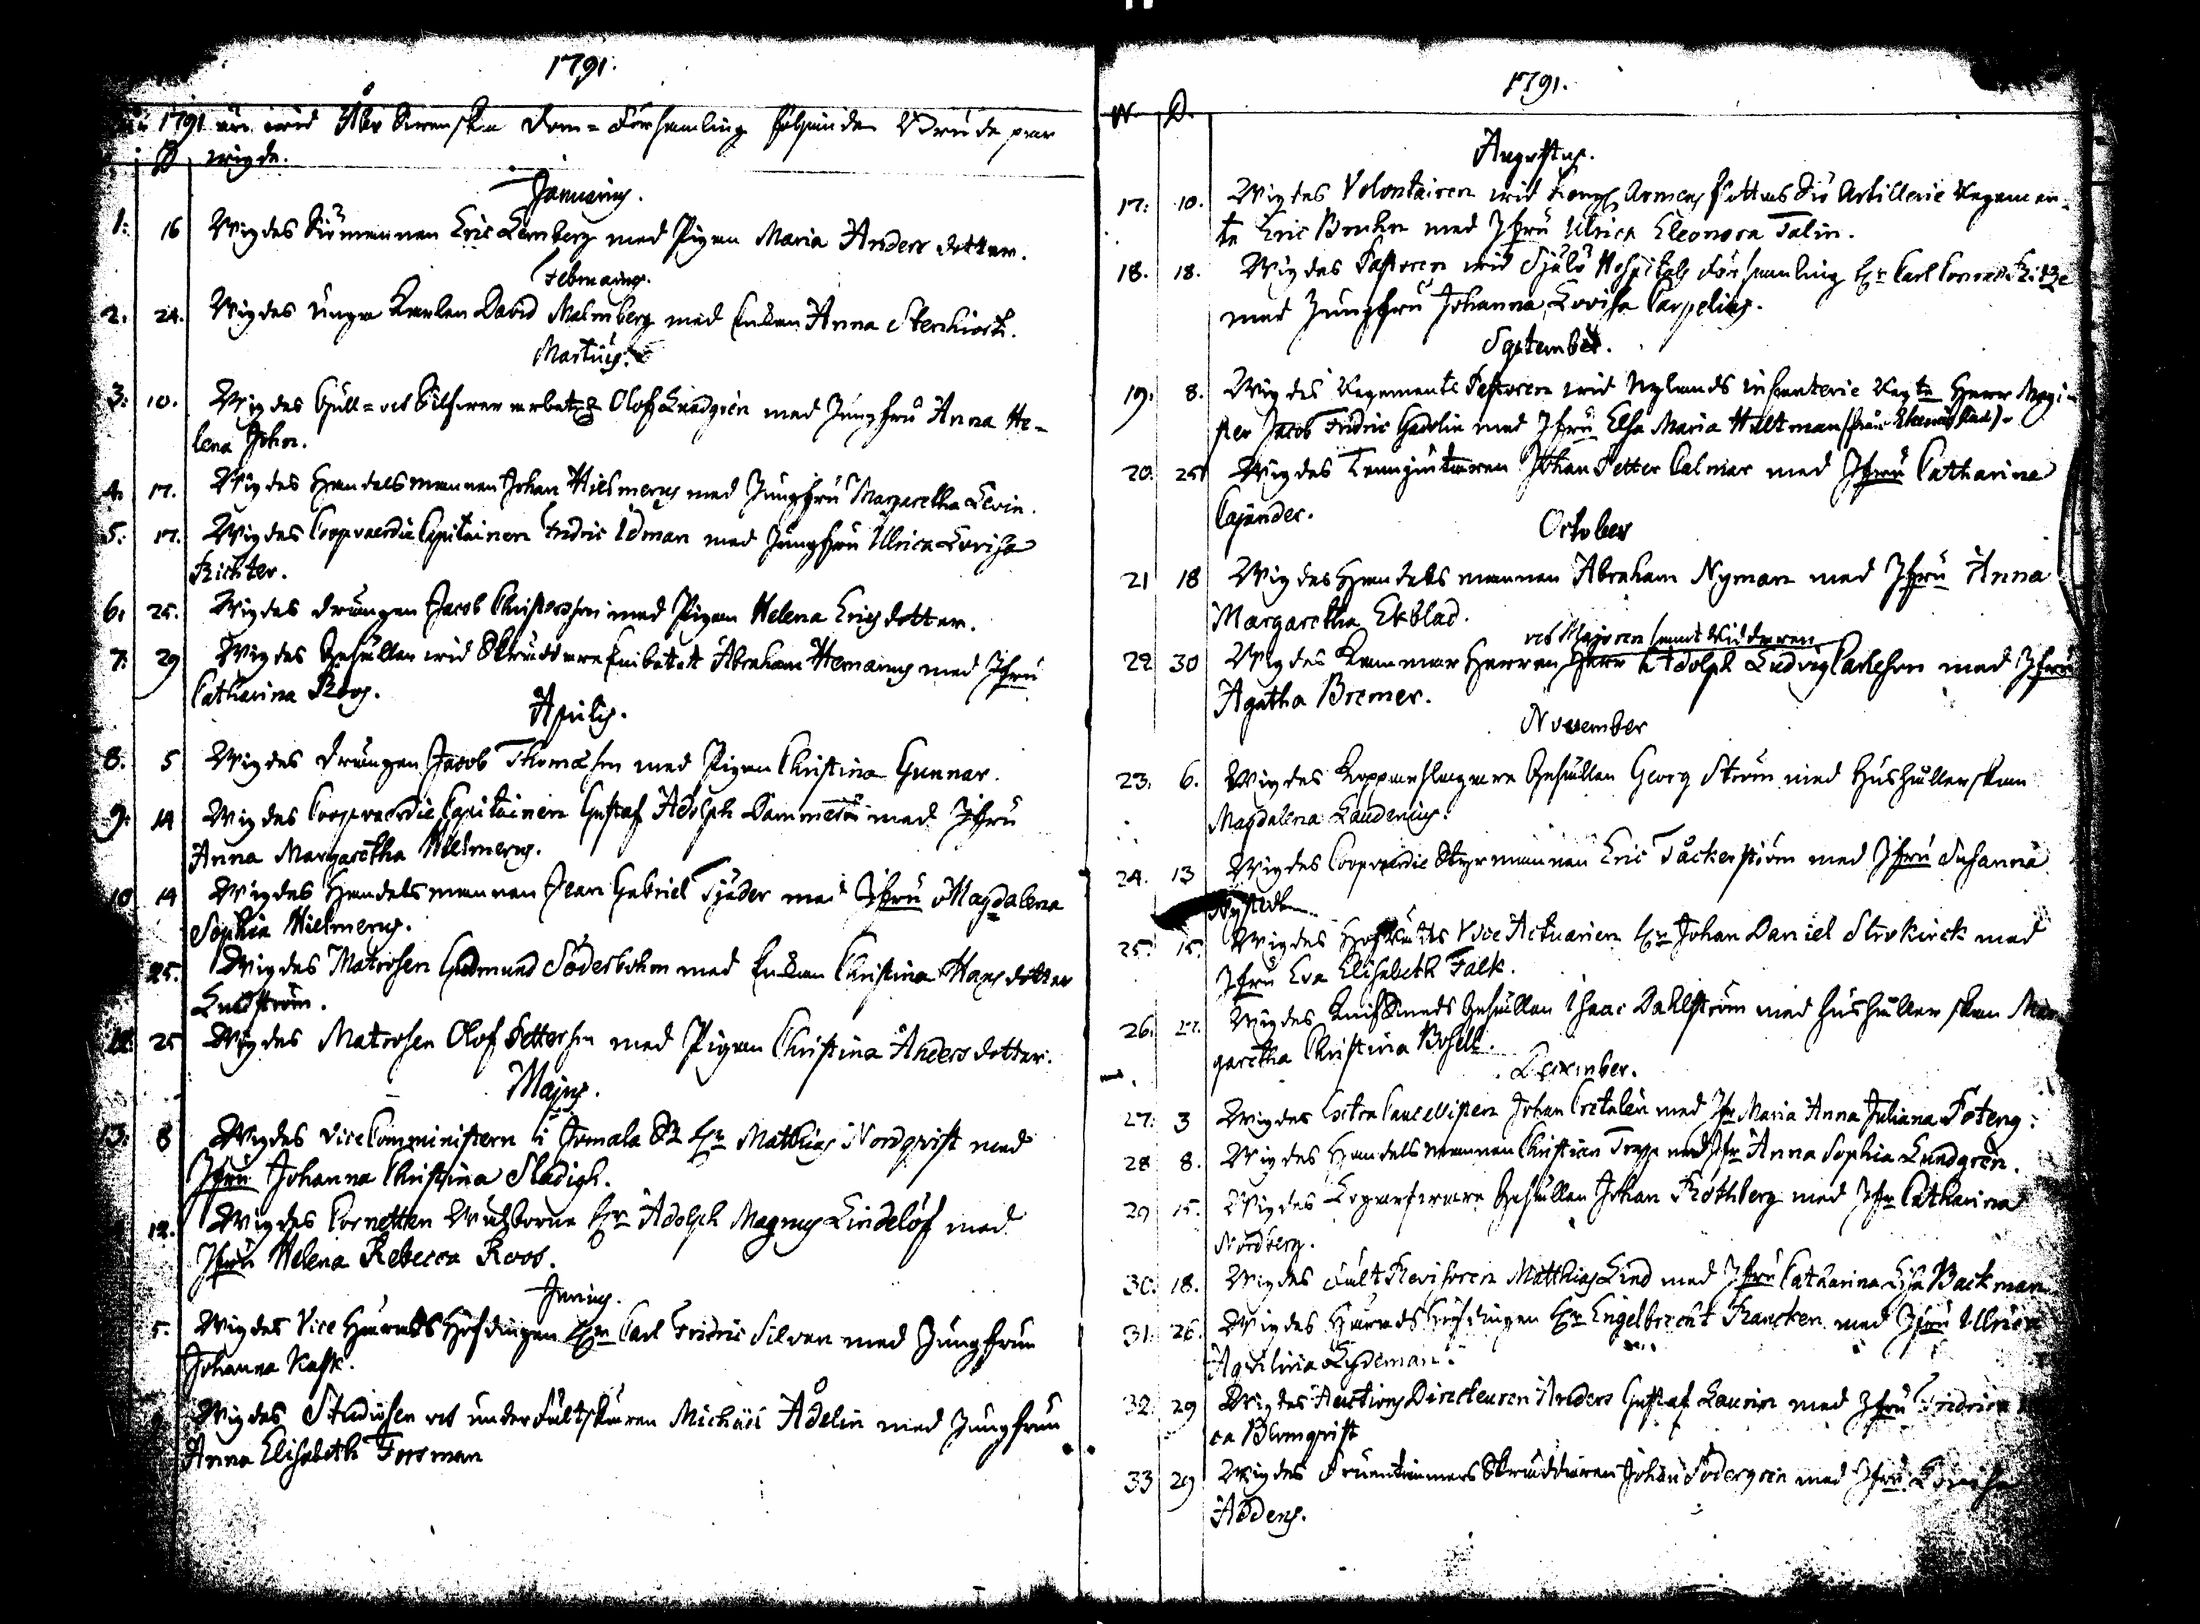 1791.
1791 äro wid Åbo Swenska Dom=Församling följande Brudepar
D wigde.
Januarius.
1: 16 Wigdes Siömannen Eric Lemberg med Pigan Maria Anders dotter.
Februarius.
2. 24. Wigdes Unga Karlen David Malmberg med Enkan Anna Stenhiort.
Martius.
3: 10. Wigdes Gull= och Silfwer arbet: Olof Lundgren med Jungfru Anna He-
lena John.
4. 17. Wigdes Handelsmannen Johan Wilsmerus med Jungfru Margaretha Levin.
5. 17. Wigdes Coopvaerdie Capitainen Fridric Idman med Jungfru Ulrica Lovisa
Richter.
6. 25. Wigdes Drängen Jacob Christersson med Pigan Helena Erics dotter.
7. 29 Wigdes Gesällen wid Skräddare Embetet Abraham Hemanus med Jfru
Catharina Roos.
Aprilis.
8. 5 Wigdes Drängen Jacob Thomasson med Pigan Christina Gunnar.
9. 14 Wigdes Coopvaerdie Capitainen Gustaf Adolph Dammert med Jfru
Anna Margaretha Wilsmerus.
10 14 Wigdes Handelsmannen Jean Gabriel Tjäder med Jfru Magdalena
Sophia Wilsmerus.
25. Wigdes Matrosen Gudmund Söderbohm med Enkan Christina Hans dotter
Lundström.
12. 25 Wigdes Matrosen Olof Pettersson med Pigan Christina Anders dotter.
Majus.
13. 8 Wigdes Vice Comministern i Jomala Sn Hr Matthias Nordqvist med
Jfru Johanna Christina Stadigh.
12. Wigdes Cornetten Wälborne Hr Adolph Magnus Lindelöf med
Jfru Helena Rebecca Roos.
Junius.
5. Wigdes Vice Häradshöfdingen Hr Carl Fridric Silvan med Jungfrun
Johanna Rask.
Wigdes Studiosen och under Fältskären Michäel Ådelin med Jungfrun
Anna Elisabeth Forsman
1791.
N. D.
Augustus.
17: 10. Wigdes Volontairen wid Kongl Armens flottas Siö Artillerie Regemen-
te Eric Bruhn med Jfru Ulrica Eleonora Talin.
18. 18. Wigdes Pastoren wid Själö Hospitals församling Hr Carl Conrad Ritze
med Jungfru Johanna Lovisa Carpelius.
September.
19. 8. Wigdes Regements Pastoren wid Nylands infanterie Regte Herr Magi-
ster Jacob Fridric Gadolin med Jfru Elsa Maria Hultman (från Ekenäs stad).
20. 25 Wigdes Johan Petter Calmar med Jfru Catharina
Cajander.
October
21 18 Wigdes Handelsmannen Abraham Nyman med Jfru Anna
Margaretha Ekblad.
och Majoren samt Riddaren
22 30 Wigdes Kammar Herren Herr Adolph Ludvig Carlsson med Jfru
Agatha Bremer.
November
23. 6. Wigdes Kopparslagare Gesällen Georg Ström med Hushållerskan
Magdalena Laudenius.
24. 13 Wigdes Coopvaerdie Styrmannen Eric Tåckerström med Jfru Susanna
Nystedt.
25. 15. Wigdes Hofrätts Vice Actuarien Hr Johan Daniel Strokirck med
Jfru Eva Elisabeth Falk.
26. 27. Wigdes Knifsmeds Gesällen Isaac Dahlström med Hushållerskan Mar-
garetha Christina Bosell.
December.
27. 3 Wigdes Extra Cancellisten Johan Cretalén med Jfr Maria Anna Juliana Foteng:
28 8. Wigdes Handelsmannen Christian Trapp med Jfr Anna Sophia Lundgren.
29 15. Wigdes Garfware Gesällen Johan Rothberg med Jfr Catharina
Nordberg.
30. 18. Wigdes Fält Revisoren Matthias Lind med Jfru Catharina Lisa Backman
31. 26. Wigdes Häradshöfdingen Hr Engelbrecht Rancken med Jfru Ulrica
Aqvilina Lydeman.
32. 29 Wigdes Auctions Directeuren Anders Gustaf Laurin med Jfru Fridrica
ca Blomqvist
33 29 Wigdes Fruentimmers Skräddaren Johan Södergren med Jfru Lovisa
Addens.